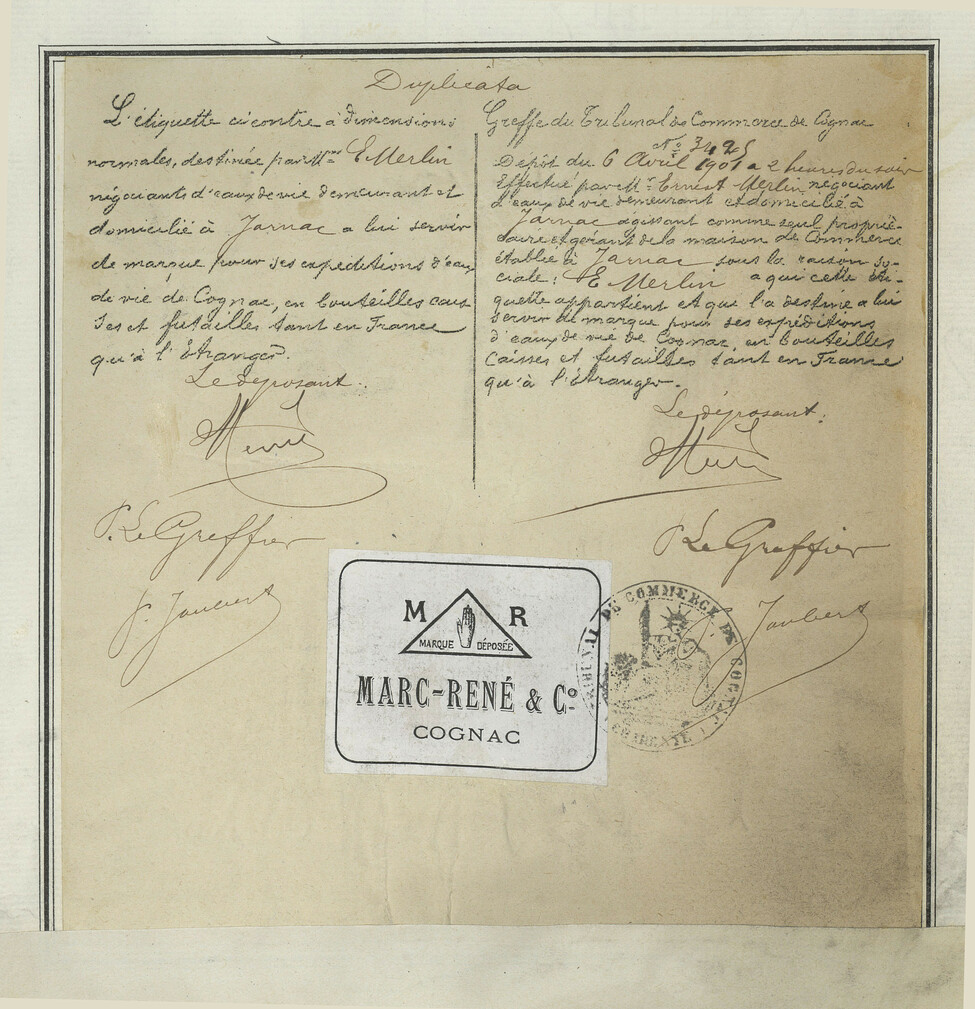 Duplicata
L'étiquette ci contre à dimensions
normales, destinée par E Merlin
négociants d'eaux de vie demeurant et
domicilié à Jarnac a lui servir
de marque pour ses expeditions d'eaux
de vie de Cognac, en bouteilles cais
ses et futailles tant en France
qu'à l'Etranger.
Le déposant.
P. Le Greffier
Joubert
Greffe du Tribunal de Commerce de Cognac
Dépôt du 6 Avril 1901 a 2 heures du soir
Effectué par Mr Ernest Merlin négociant
d'eaux de vie demeurant et domicilié à
Jarnac agissant comme seul proprié-
taire et gérant de la maison de Commerce
établie à Jarnac sous la raison so-
ciale: E Merlin a qui cette éti-
quette appartient et qui l'a destine a lui
servir de marque pour ses expéditions
d'eaux de vie de Cognac, en bouteilles
Caisses et futailles tant en France
qu'à l'étranger.
Le déposant:
P. Le Greffier
Joubert
M R
MARQUE DÉPOSÉE
MARC-RENÉ & Co
COGNAC
TRIBUNAL DE COMMERCE DE COGNAC
CHARENTE